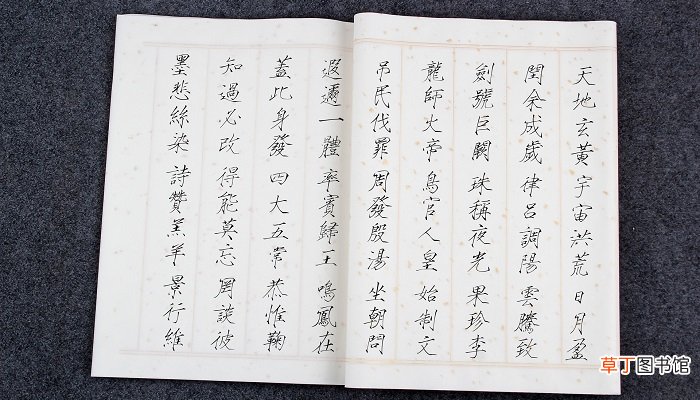 天地玄黃 宇宙洪荒 日月盈
閏余成歲 律呂調陽 雲騰致
劍號巨闕 珠稱夜光 果珍李
龍師火帝 鳥官人皇 始制文
吊民伐罪 周發殷湯 坐朝問
遐邇一體 率賓歸王 鳴鳳在
蓋此身發 四大五常 恭惟鞠
知過必改 得能莫忘 罔談彼
墨悲絲染 詩贊羔羊 景行維
草丁图书馆